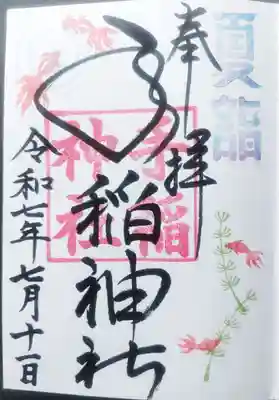 夏詣
奉拝
手稲神社
手稲
神社
令和七年七月十一日